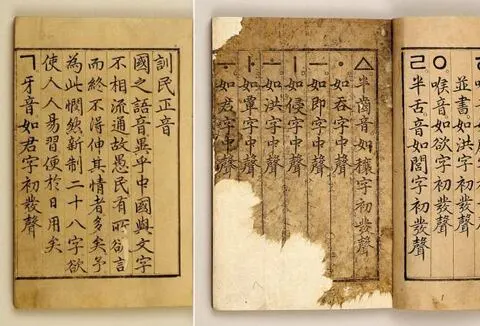 訓民正音
國之語音異乎中國與文字
不相流通故愚民有所欲言
而終不得伸其情者多矣予
為此憫然新制二十八字欲
使人人易習便於日用矣
ㄱ牙音如君字初發聲
並書如洪字初發聲
ㅇ喉音如欲字初發聲
ㄹ半舌音如閭字初發聲
ㅿ半齒音如穰字初發聲
ㆍ如呑字中聲
ㅡ如即字中聲
ㅣ如侵字中聲
ㅗ如洪字中聲
ㅏ如覃字中聲
ㅜ如君字中聲